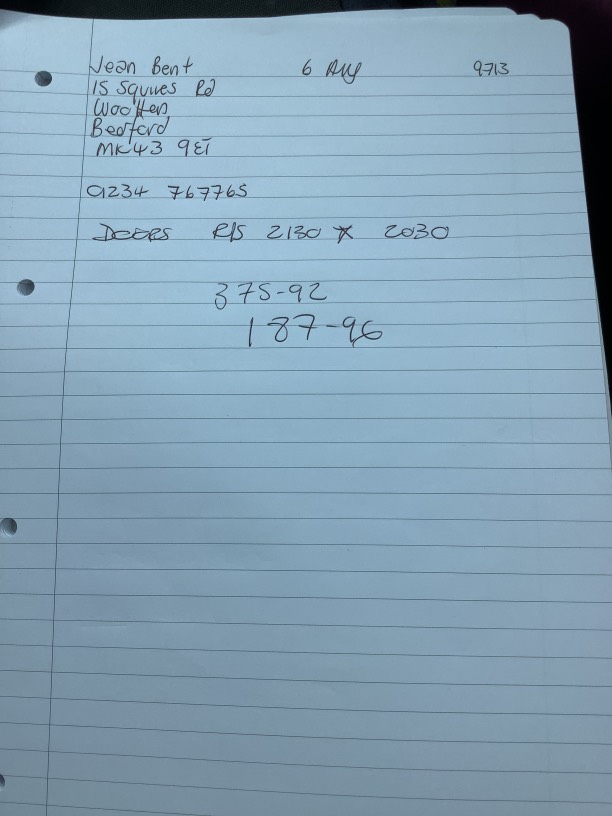 Jean Bent 6 Aug 9713
15 Squires Rd
Wootten
Bedford
MK43 9ET
01234 767765
DOORS R/S 2130 * 2030
375-92
187-96